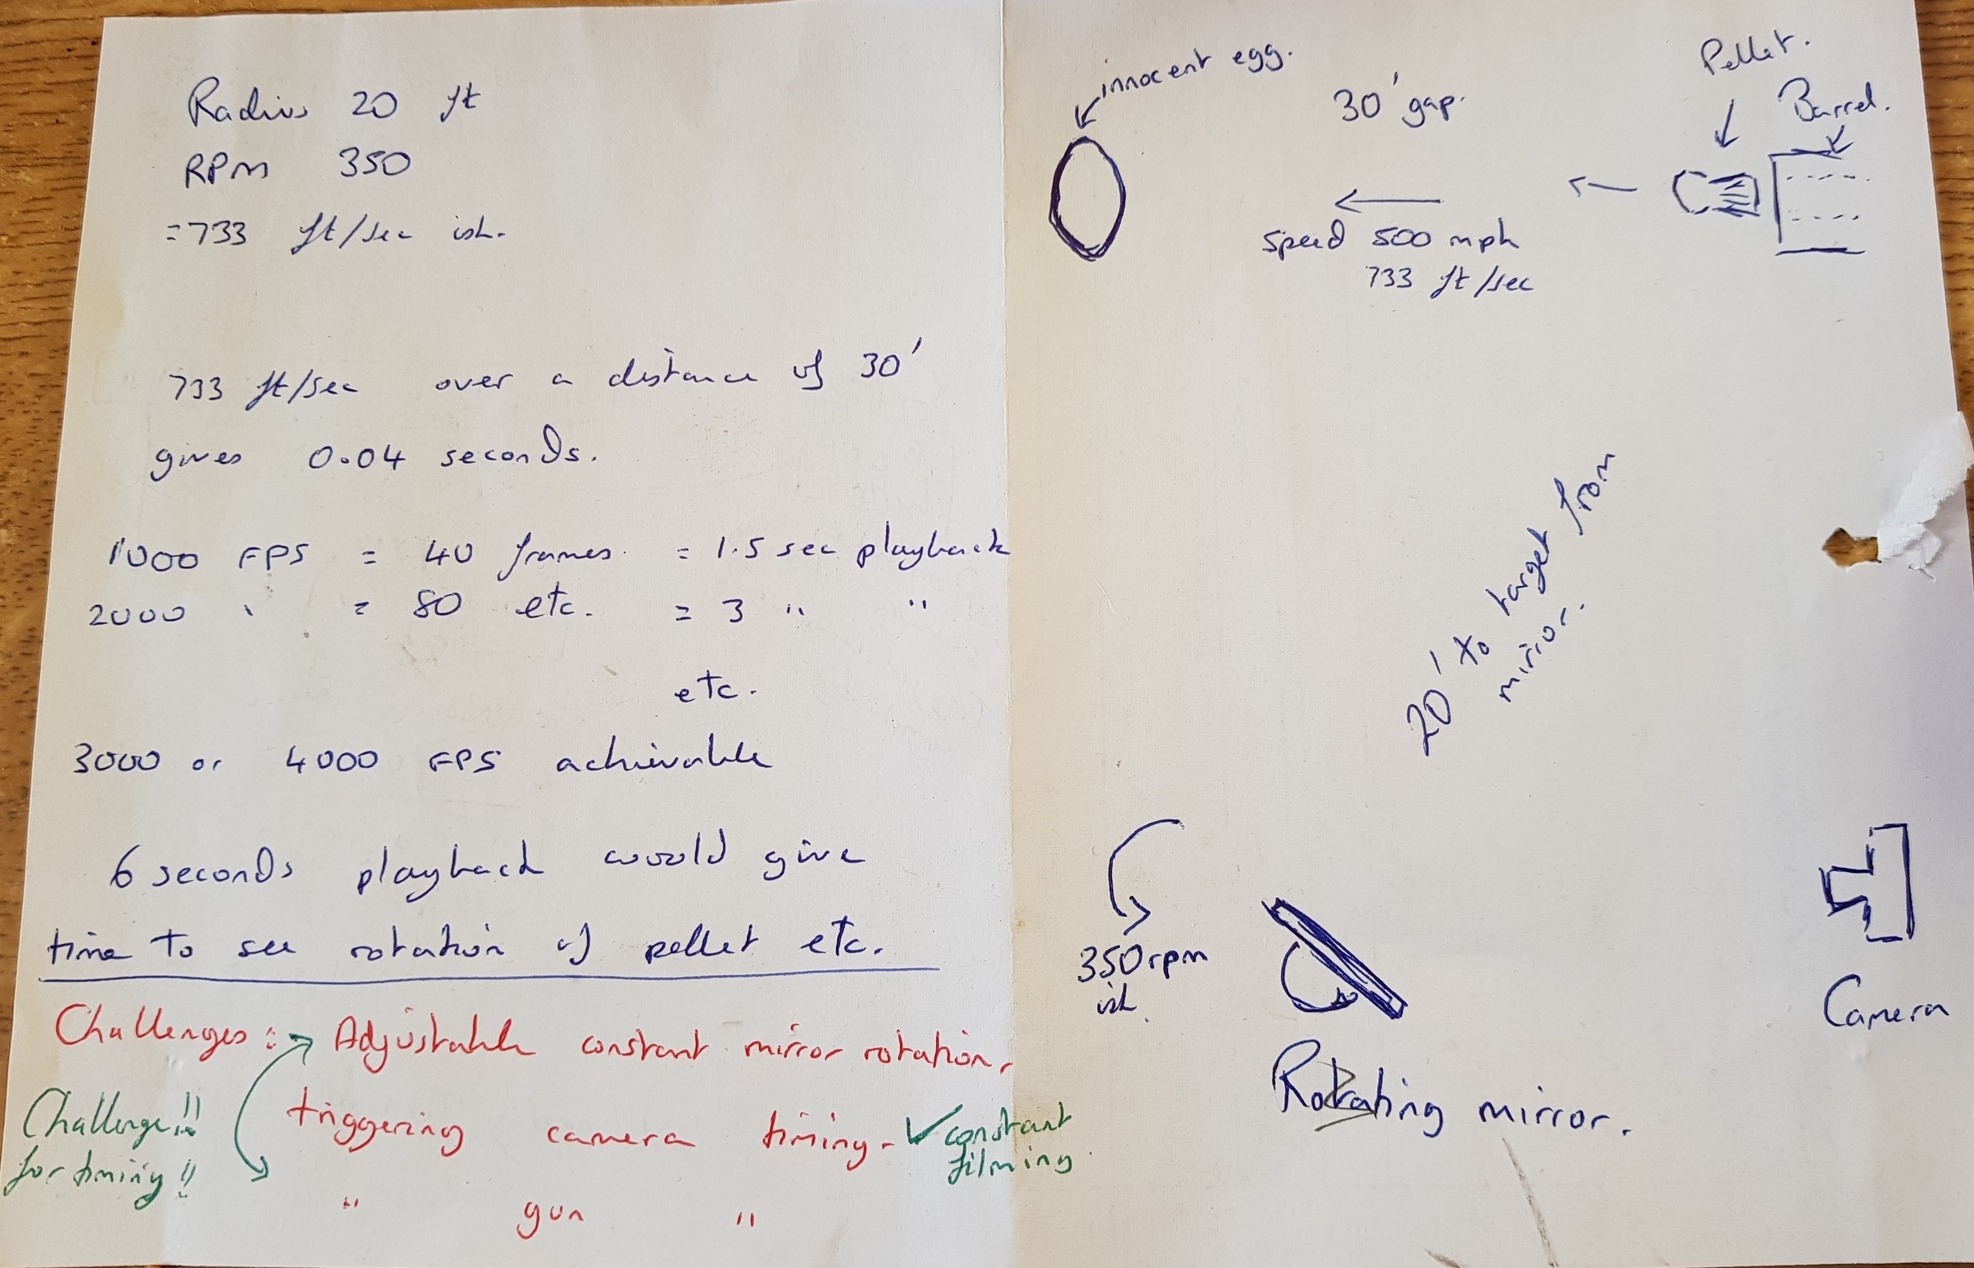 Radius 20 ft
RPM 350
=733 ft/sec ish.
733 ft/sec over a distance of 30'
gives 0.04 seconds.
1000 FPS = 40 frames. = 1.5 sec playback
2000 " = 80 etc. = 3 " "
etc.
3000 or 4000 FPS achievable
6 seconds playback would give
time to see rotation of pellet etc.
Challenges: Adjustable constant mirror rotation.
triggering camera timing. ✓ constant
filming.
" gun "
Challenge!!
for timing!!
innocent egg.
30' gap.
Pellet.
Barrel.
speed 500 mph
733 ft/sec
20' to target from
mirror.
350rpm
ish.
Camera
Rotating mirror.